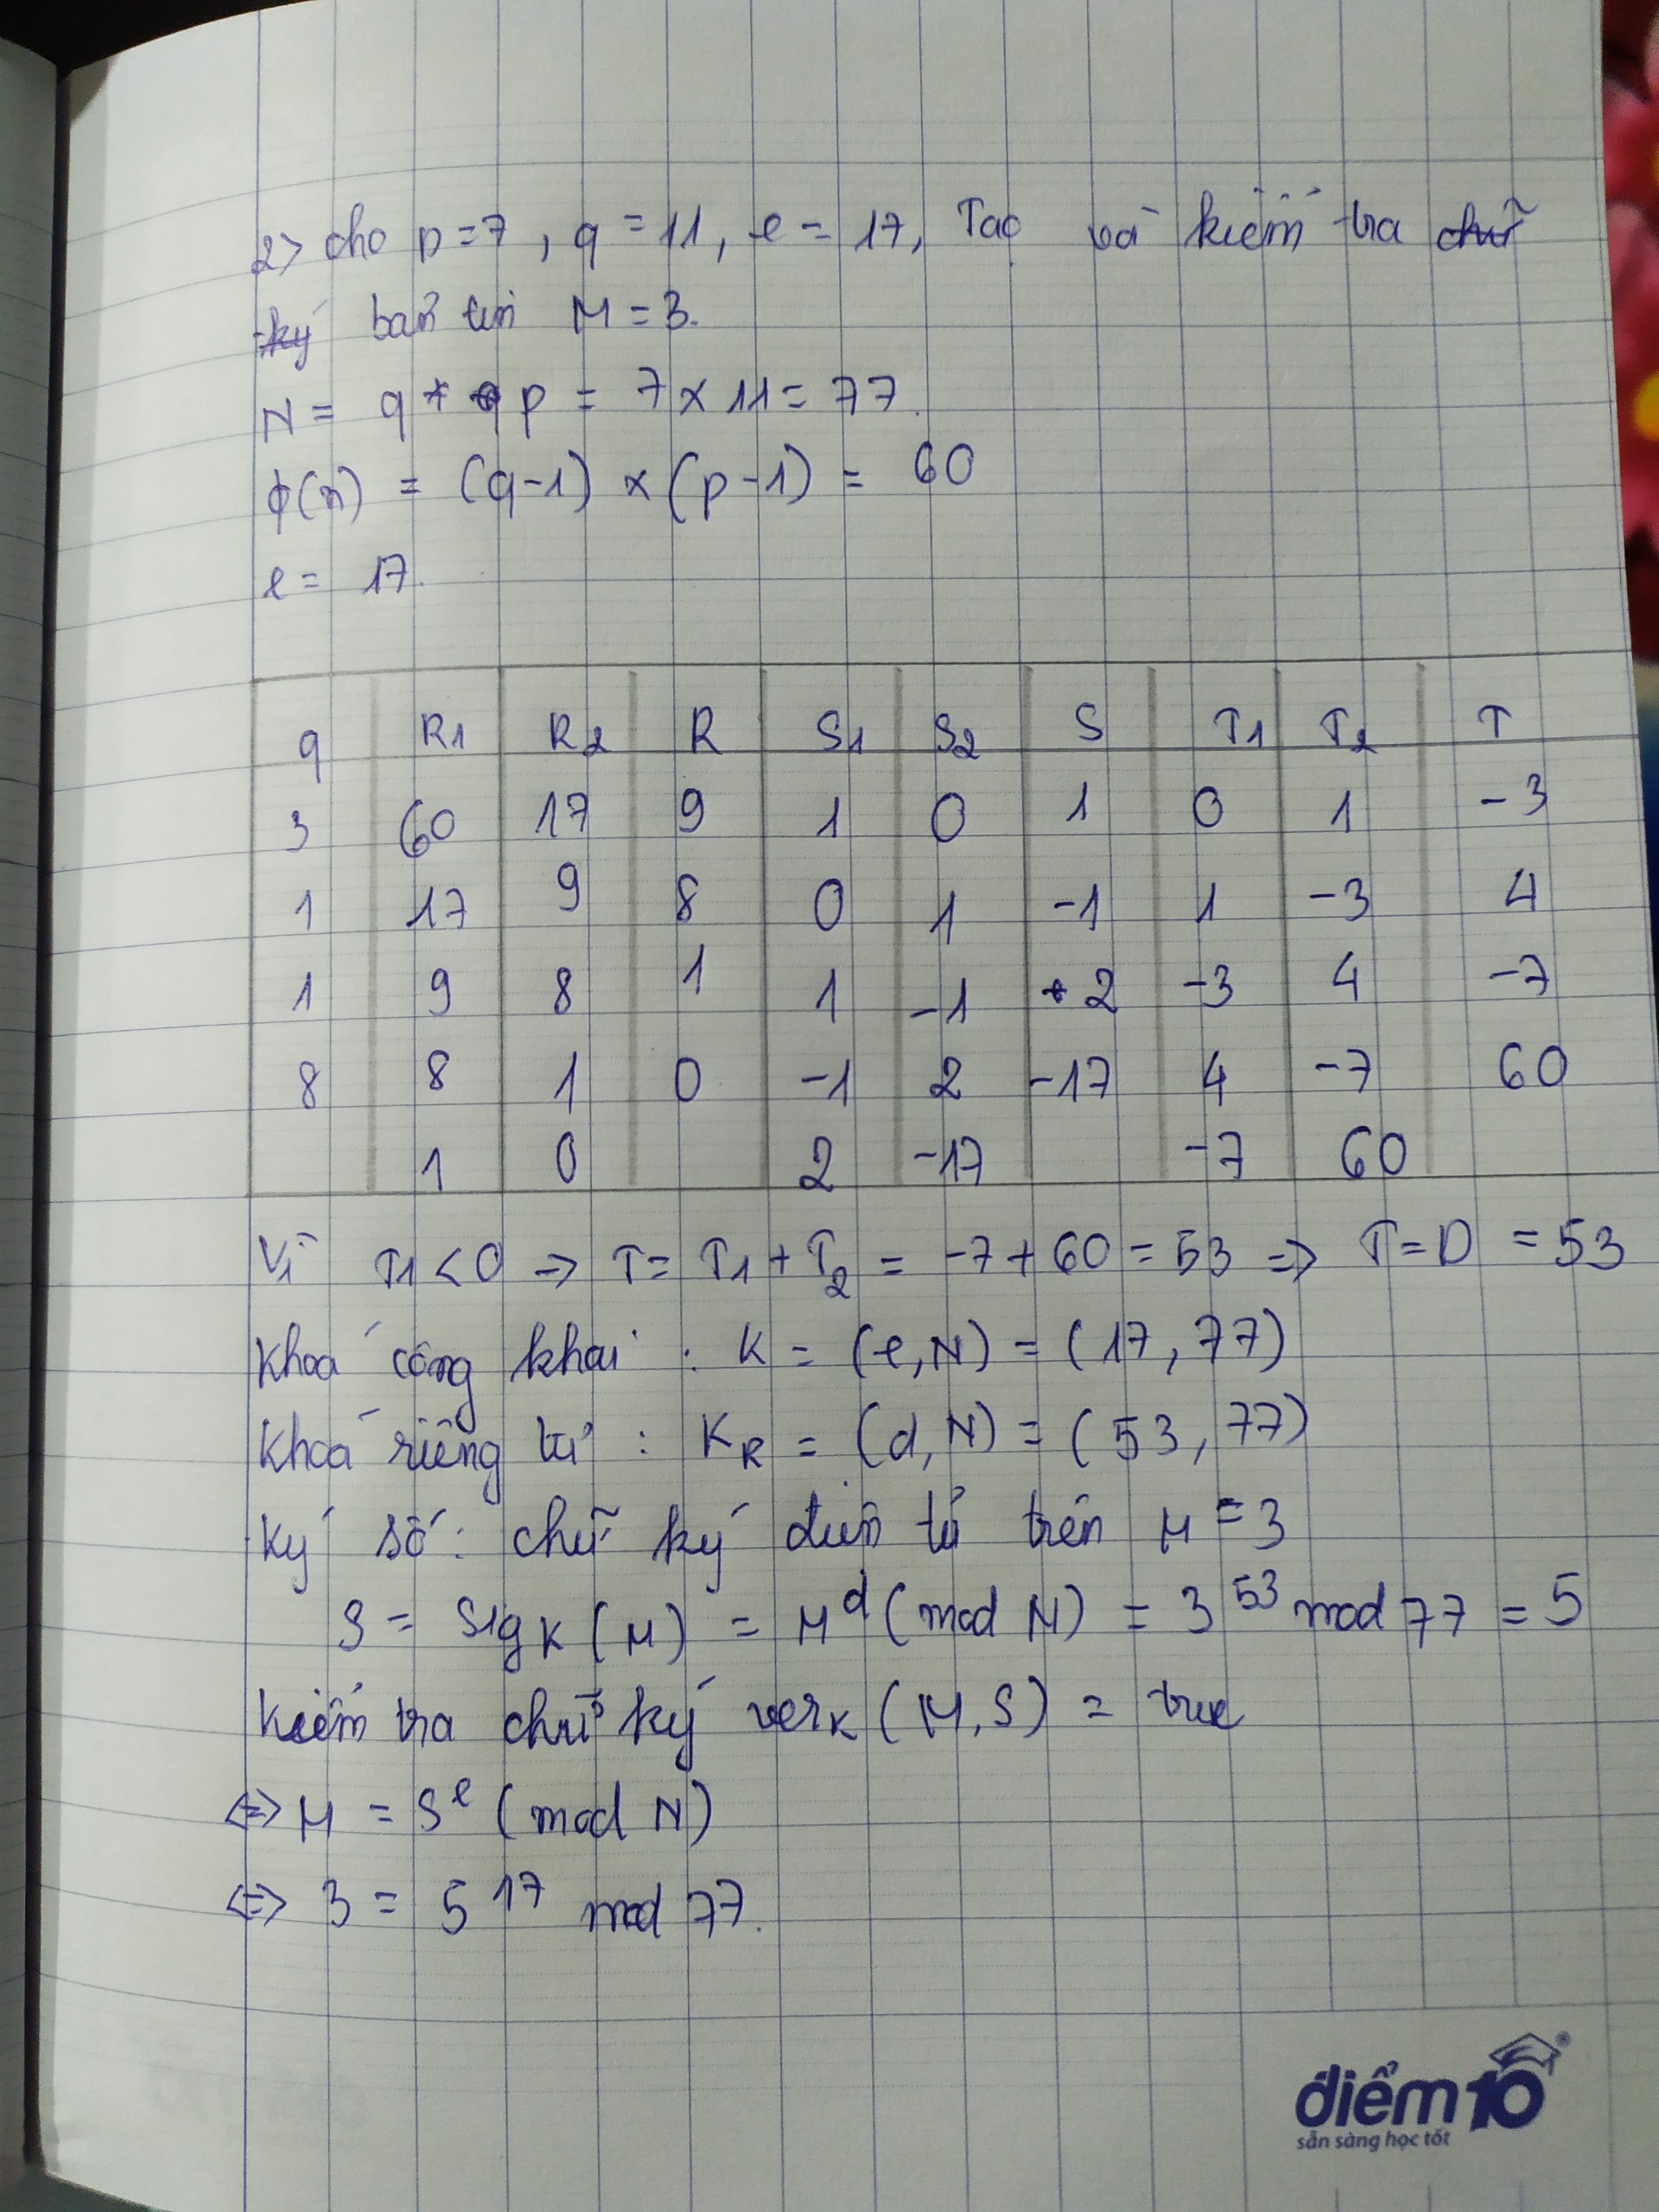 2> cho p = 7, q = 11, e = 17, Tạo và kiểm tra chữ
ký bản tin M = 3.
N = q * p = 7 x 11 = 77.
ϕ(n) = (q-1) x (p-1) = 60
e = 17.
q R1 R2 R S1 S2 S T1 T2 T
3 60 17 9 1 0 1 0 1 -3
1 17 9 8 0 1 -1 1 -3 4
1 9 8 1 1 -1 2 -3 4 -7
8 8 1 0 -1 2 -17 4 -7 60
1 0 2 -17 -7 60
Vì T1 < 0 → T = T1 + T2 = -7 + 60 = 53 => T = D = 53
Khoá công khai : K = (e, N) = (17, 77)
Khoá riêng tư : KR = (d, N) = (53, 77)
Ký số : chữ ký điện tử trên M = 3
S = SigK (M) = M^d (mod N) = 3^53 mod 77 = 5
Kiểm tra chữ ký verK (M, S) = true
<=> M = S^e (mod N)
<=> 3 = 5^17 mod 77.
điểm10
sẵn sàng học tốt